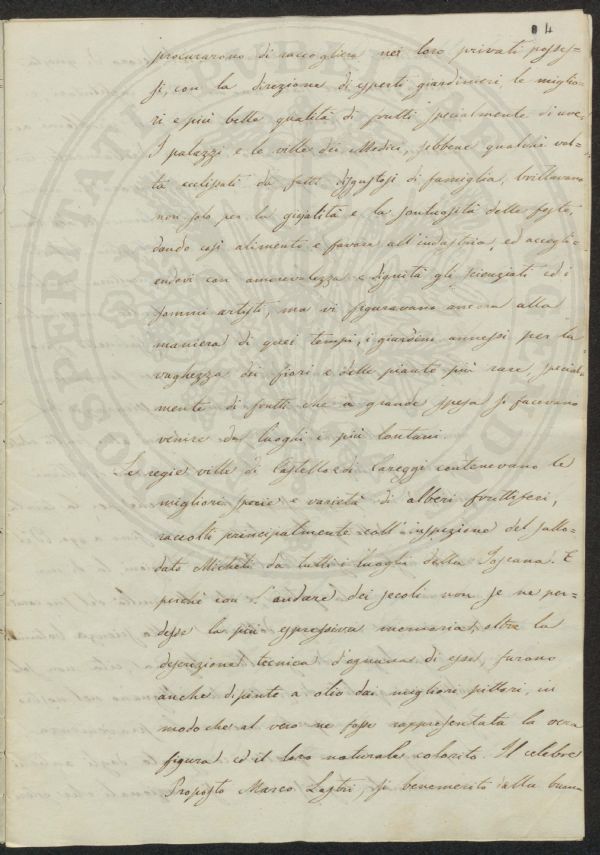 84
procurarono di raccogliere nei loro privati posses=
si, con la direzione di esperti giardinieri, le miglio=
ri e più belle qualità di frutti specialmente di uve.
I palazzi e le ville dei Medici, sebbene qualche vol=
ta eclissati da fatti disgustosi di famiglia, brillavano
non solo per la giojalità e la sontuosità delle feste,
dando così alimento e favore all'industria, ed accogli=
endovi con amorevolezza e dignità gli scienziati ed i
sommi artisti, ma vi figuravano ancora alla
maniera di quei tempi, i giardini annessi per la
vaghezza dei fiori e delle piante più rare, special=
mente di frutti che a grande spesa si facevano
venire da luoghi i più lontani.
Le regie ville di Castello e di Careggi contenevano le
migliori specie e varietà di alberi fruttiferi,
raccolti principalmente coll'inspezione del sullo=
dato Micheli da tutti i luoghi della Toscana. E
perché con l'andare dei secoli non se ne per=
desse la più espressiva memoria, oltre la
descrizione tecnica d'ognuna di esse, furono
anche dipinte a olio dai migliori pittori, in
modo che al vero ne fosse rappresentata la vera
figura ed il loro naturale colorito. Il celebre
Proposto Marco Lastri, sì benemerito alla buona
PROSPERITATI PUBLICAE AUGENDAE